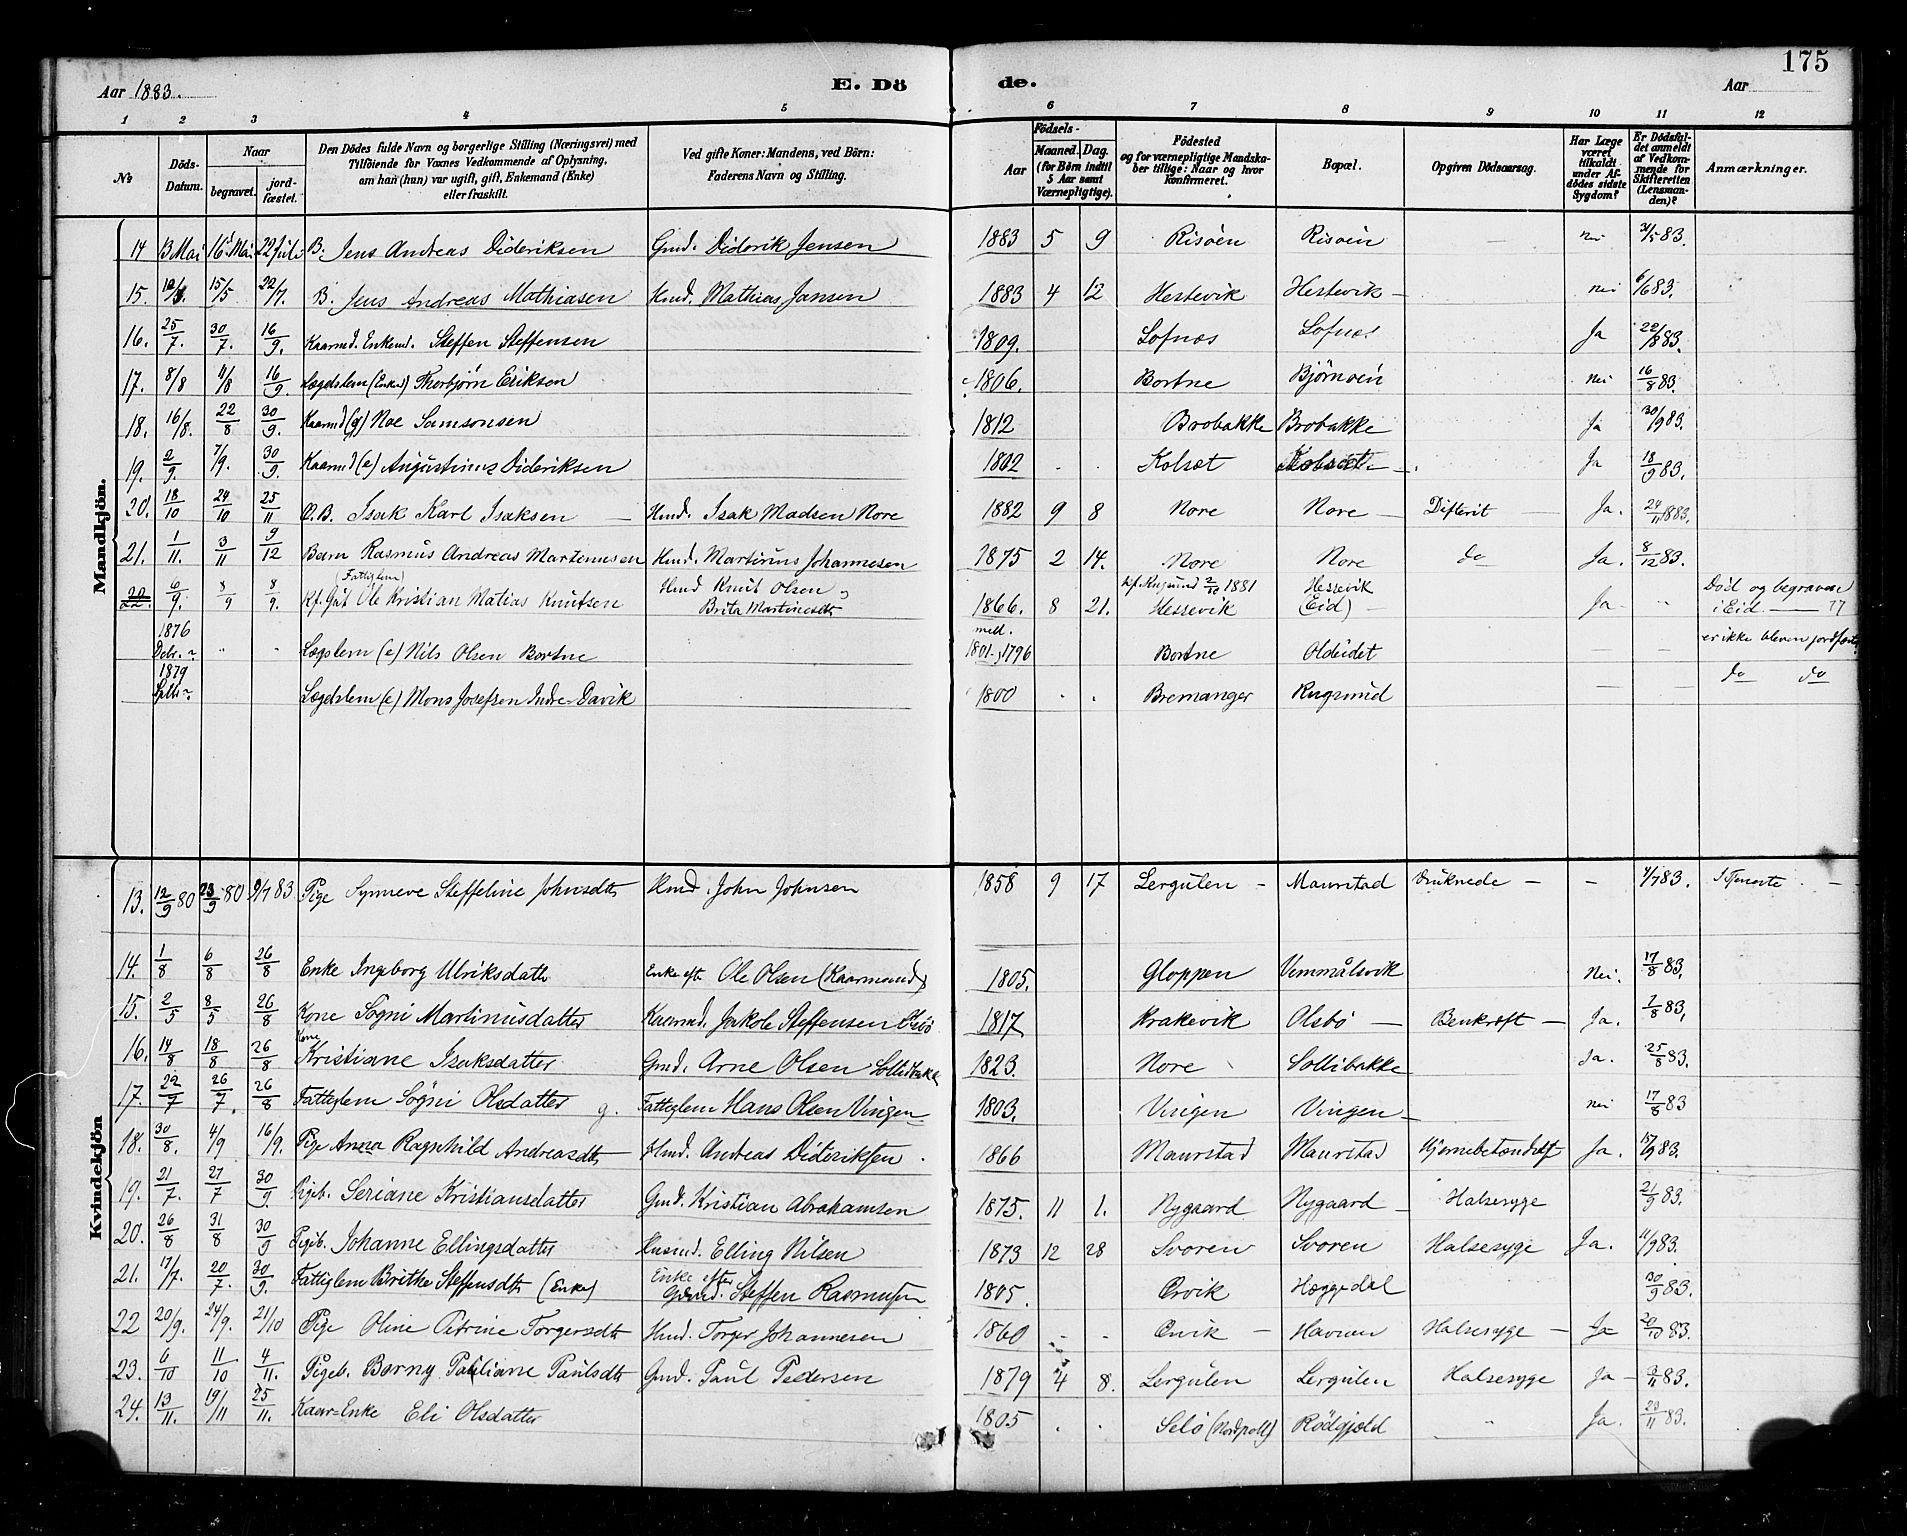 175
Aar 1883.
E. Dö
de.
Aar
1 2 3 4 5 6 7 8 9 10 11 12
No
Döds-Datum.
Naar
begravet.
jord-fæstet.
Den Dödes fulde Navn og borgerlige Stilling (Næringsvei) med
Tilföiende for Voxnes Vedkommende af Oplysning,
om han (hun) var ugift, gift, Enkemand (Enke)
eller fraskilt.
Ved gifte Koner: Mandens, ved Börn:
Faderens Navn og Stilling.
Födsels-
Aar
Maaned. Dag.
(for Börn indtil
5 Aar samt
Værnepligtige).
Födested
og for værnepligtige Mandskaber
tillige: Naar og hvor
konfirmeret.
Bopæl.
Opgiven Dödsaarsag.
Har Læge
været
tilkaldt
under Afdödes
sidste
Sygdom?
Er Dödsfaldet
anmeldt
af Vedkommende
for
Skifteretten
(Lensmanden)?
Anmærkninger.
Mandkjön.
14 13 Mai 16 Mai 22 Juli B. Jens Andreas Dideriksen Gmd. Diderik Jensen 1883 5 9 Risöen Risöen — nei 31/5 83.
15. 12/5. 15/5 22/7. B. Jens Andreas Mathiasen Hmd. Mathias Jansen 1883 4 12 Hestevik Hestevik — nei 6/6 83.
16. 25/7. 30/7. 16/9. Kaarmd. Enkemd. Steffen Steffensen 1809. Lofnæs Lofnæs Ja 22/8 83.
17. 8/8 11/8 16/9 Lægdslem (Enkmd) Thorbjörn Eriksen 1806. Bortne Björnöen nei 16/8 83.
18. 16/8. 22/8 30/9. Kaarmd (g) Noe Samsonsen 1812 Brobakke Brobakke Ja 30/9 83.
19. 2/9. 7/9. 30/9. Kaarmd (e) Augustinus Dideriksen 1802 Kolset Kolset — Ja 18/9 83.
20. 18/10 24/10 25/11 B. Isak Karl Isaksen — Hmd. Isak Madsen Nore 1882 9 8 Nore Nore — Difterit — Ja. 24/11 1883.
21. 1/11. 3/11 9/12 Barn Rasmus Andreas Martinusen Hmd. Martinus Johannesen 1875 2 14. Nore Nore do Ja. 8/12 83.
22. 6/9. 8/9 8/9. (Fattiglem) Kf. Gut Ole Kristian Matias Knutsen Hmd Knut Olsen Brita Martinusdtr 1866. 8 21. Kf. Rugsund 2/10 1881 Hessevik Hessevik (Eid) — Ja — Död og begraven i Eid — 17
1876 Debr. Lægslem (e) Nils Olsen Bortne mell. 1801-1796 Bortne Oldeidet — — er ikke bleven jordfæstet
1879 Lægdslem (e) Mons Josefsen Indre-Davik 1800 Bremanger Rugsund — — do do
Kvindekjön
13. 12/9 80 23/9 80 9/7 83 Pige Synneve Steffeline Johnsdtr Hmd. John Johnsen 1858 9 17 Lergulen — Maurstad Druknede — — 4/7 83. I Tjeneste
14. 1/8 6/8 26/8 Enke Ingeborg Ulriksdatter Enke eft. Ole Olsen (Kaarmand) 1805. Gloppen Vemmålsvik Nei. 17/8 83.
15. 2/5 8/5 26/8 Kone Sögni Martinusdatter Kaarmd. Jakob Steffensen Olsbö 1817 Krakevik Olsbö — Benkræft — Ja. 7/8 83.
16. 14/8 18/8 26/8 Kone Kristiane Isaksdatter Gmd. Arne Olsen Sollibakke 1823. Nore Sollibakke Ja. 25/8 83.
17. 22/7 26/7. 26/8 Fattiglem Sögni Olsdatter g. Fattiglem Hans Olsen Vingen 1803. Vingen Vingen — nei 17/8 83
18. 30/8. 4/9 16/9. Pige Anna Ragnhild Andreasdtr Hmd. Andreas Dideriksen 1866 Maurstad Maurstad Hjernebetændelse Ja. 15/9 83.
19. 21/7. 27/7 30/9 Pigeb. Seriane Kristiansdatter Gmd. Kristian Abrahamsen 1875. 11 1. Nygaard Nygaard — Halsesyge 21/9 83.
20. 26/8 31/8 30/9 Pigeb. Johanne Ellingsdatter Husmd. Elling Nilsen 1873 12 28 Svoren Svoren Halsesyge Ja. 11/9 83.
21. 17/7. 20/7. 30/9. Fattiglem Brithe Steffensdtr (Enke) Enke efter Gmd. Steffen Rasmusen 1805. Ervik Heggedal 30/9 83.
22 20/9. 24/9. 21/10 Pige Oline Petrine Torgersdtr Hmd. Torger Johannesen 1860 — Ervik — Havnen Halsesyge — Ja 20/10 83.
23. 6/10 11/10 4/11. Pigeb. Berny Pauliane Paulsdtr Gmd. Paul Pedersen 1879 4 8. Lergulen Lergulen Halsesyge Ja — 3/11 83.
24. 13/11. 19/11 25/11. Kaar-Enke Eli Olsdatter 1805 Selö (Nordpoll) Rödgjeld Ja. 23/11 83.